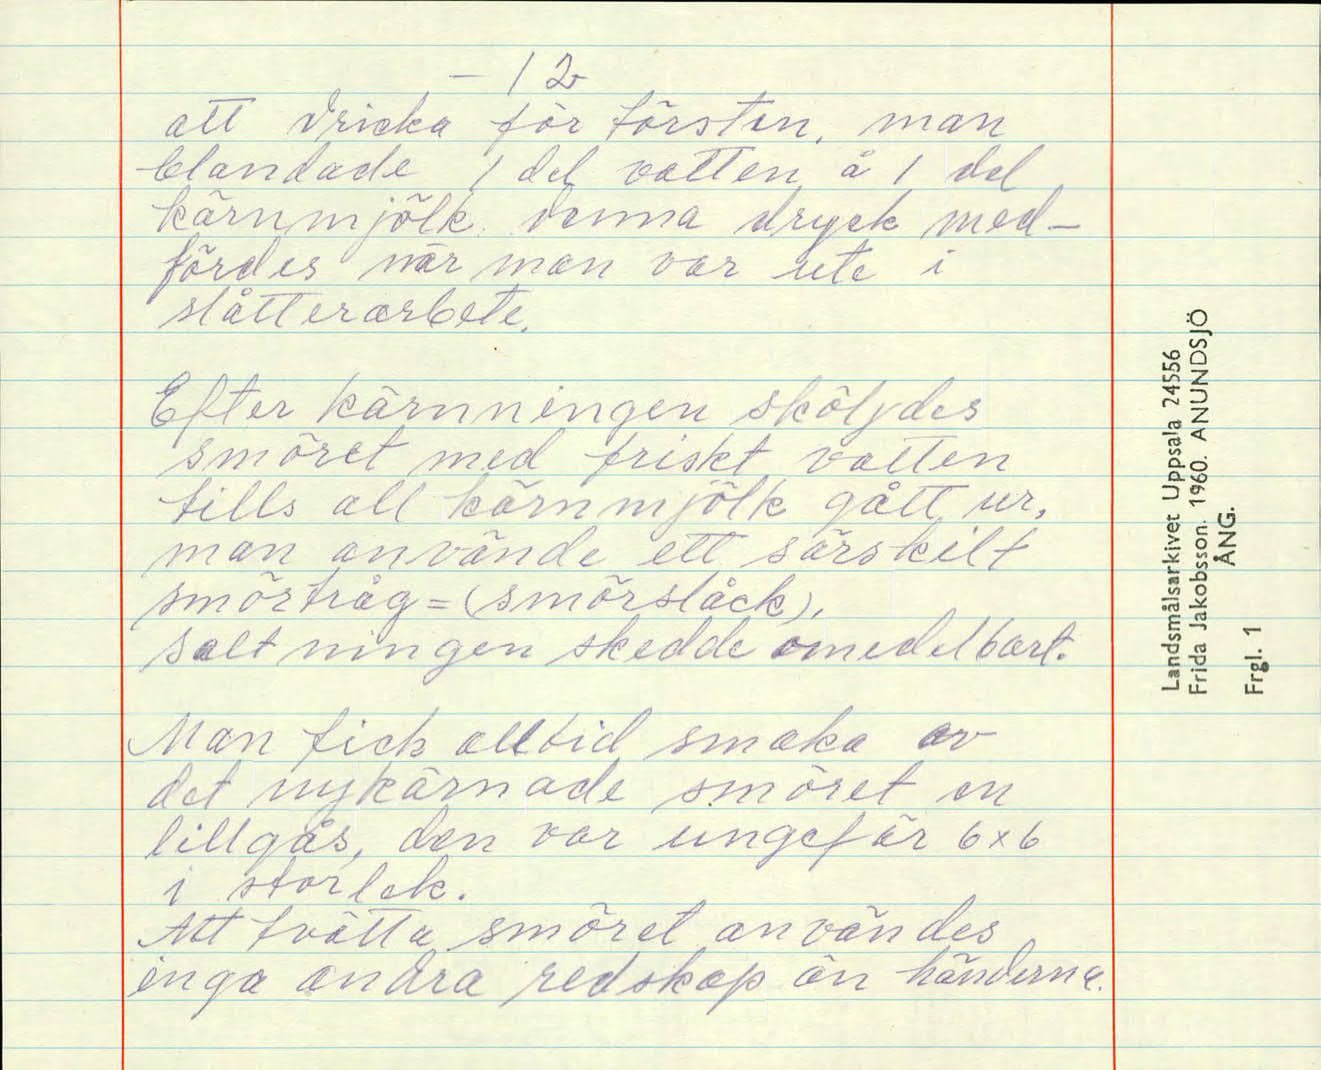 - 12
att dricka för törsten, man
blandade 1 del vatten å 1 del
kärnmjölk, denna dryck med-
fördes när man var ute i
slåtterarbete.
Efter kärnningen sköljdes
smöret med friskt vatten
tills all kärnmjölk gått ur,
man använde ett särskilt
smörtråg=(smörslåck),
saltningen skedde omedelbart.
Man fick alltid smaka av
det nykärnade smöret en
lillgås, den var ungefär 6x6
i storlek.
Att tvätta smöret användes
inga andra redskap än händerna.
Landsmålsarkivet Uppsala 24556
Frida Jakobsson. 1960. ANUNDSJÖ
ÅNG.
Frgl. 1